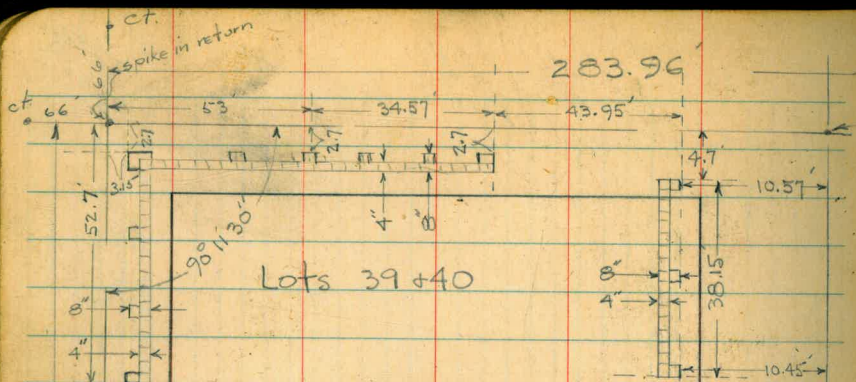 ct.
spike in return
66'
283.96'
ct. 66'
53'
34.57'
43.95'
2.7
2.7
2.7
4.7'
3.15
10.57'
52.7'
4"
8"
90° 11' 30"
Lots 39 & 40
8"
4"
38.15
8"
4"
10.45'